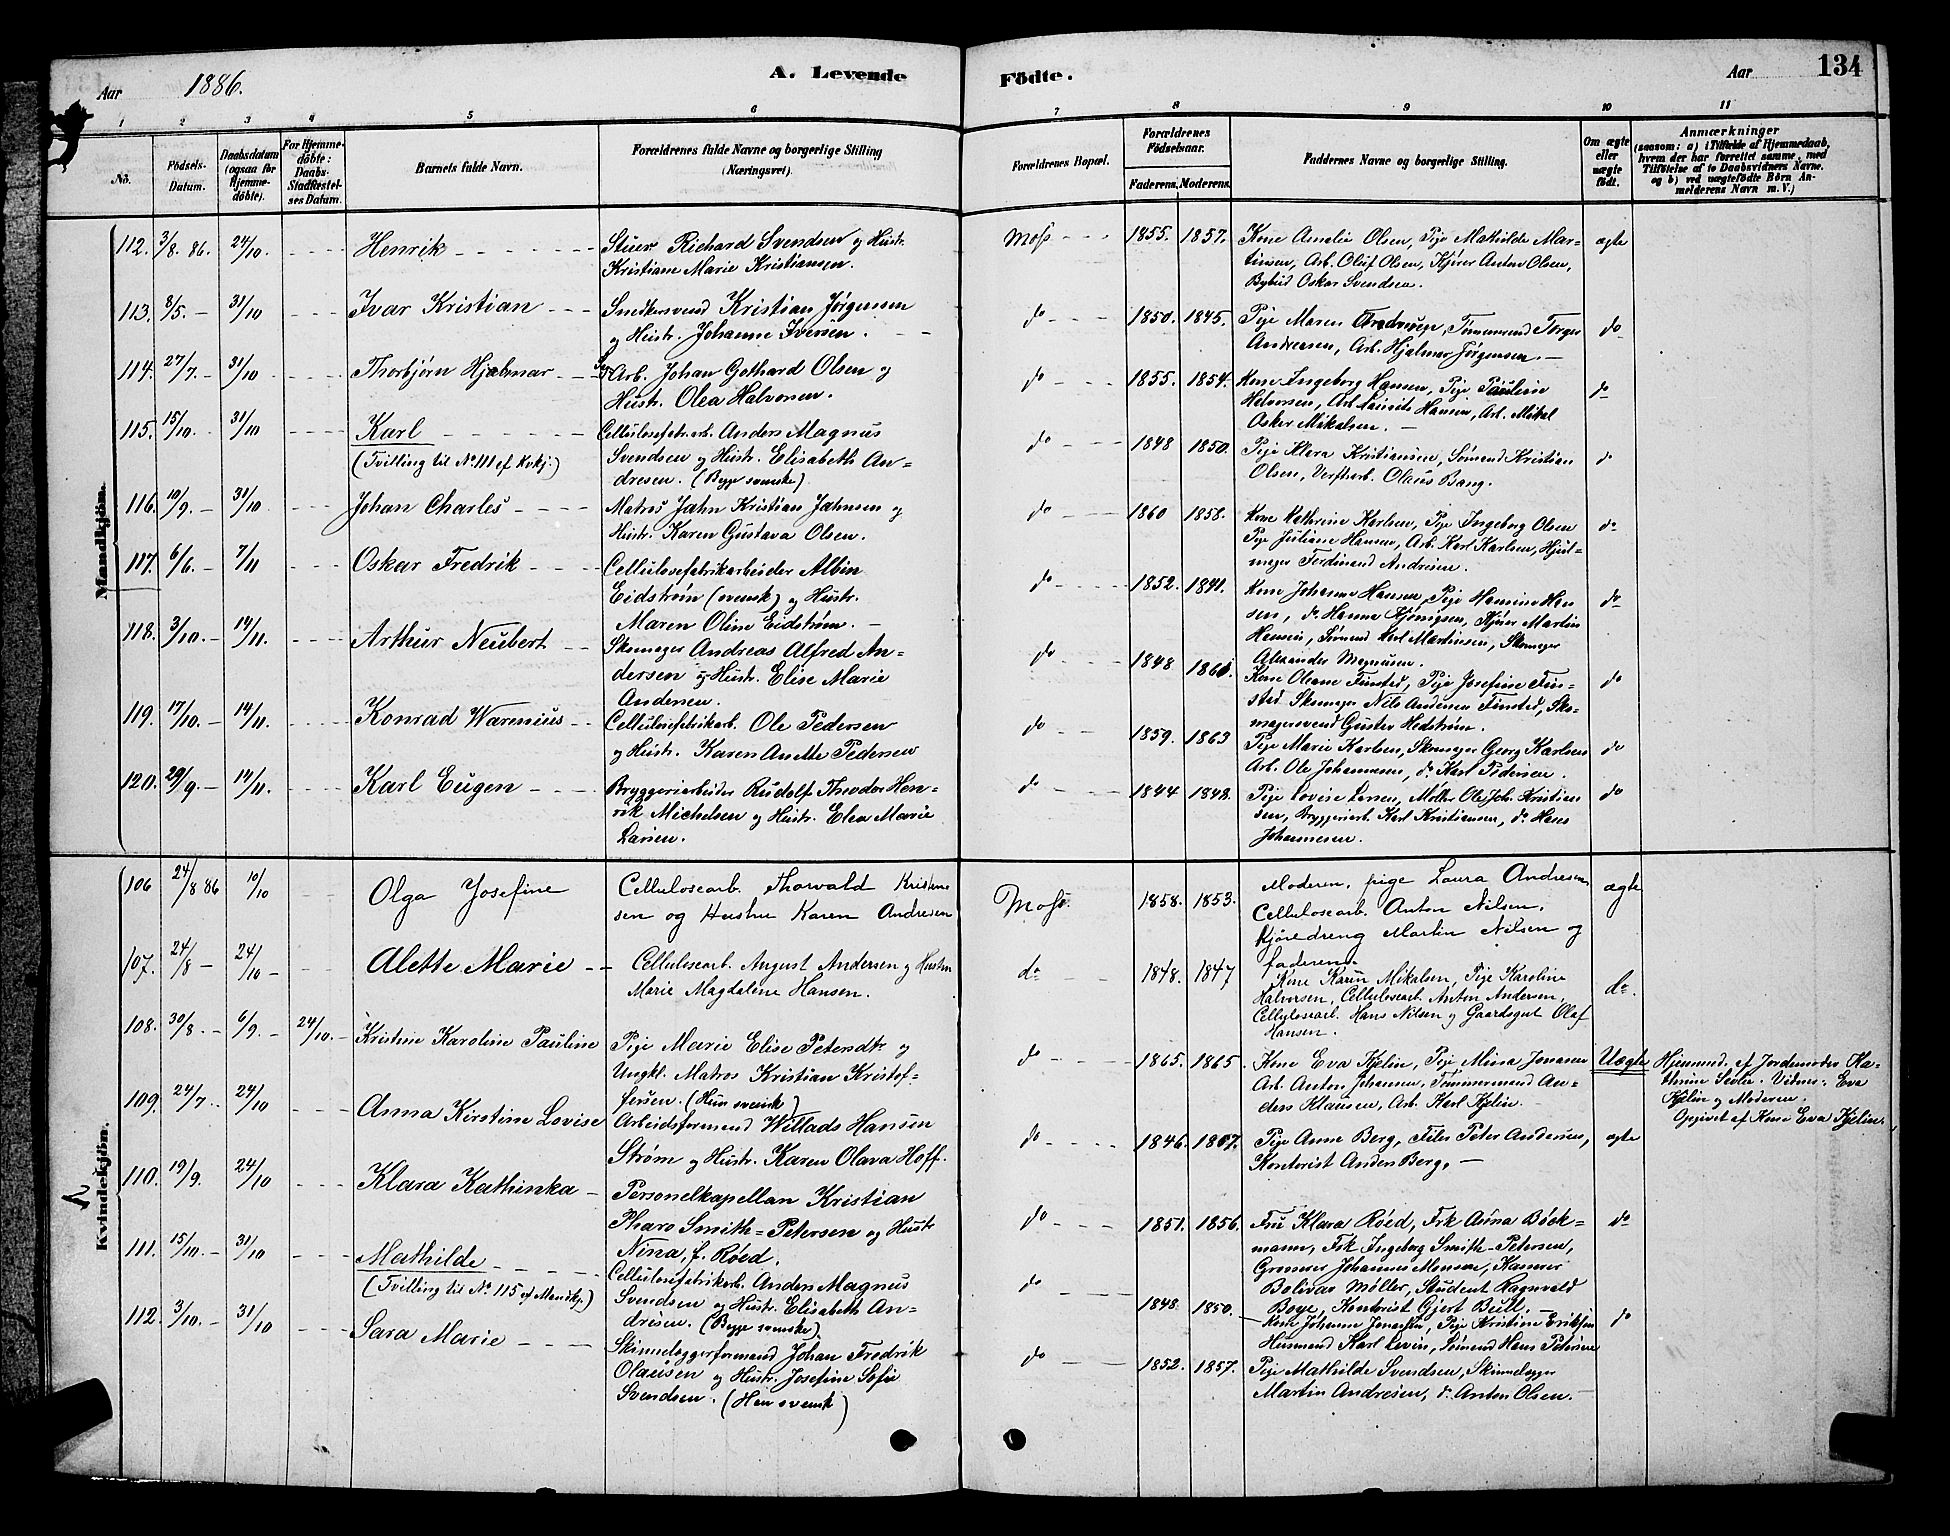 Aar 1886.
A. Levende Födte.
Aar
134
1 2 3 4 5 6 7 8 9 10 11
No.
Födsels-Datum.
Daabsdatum (ogsaa for Hjemme-döbte).
For Hjemme-döbte: Daabs-Stadfæstel-ses Datum.
Barnets fulde Navn.
Forældrenes fulde Navne og borgerlige Stilling (Næringsvei).
Forældrenes Bopæl.
Forældrenes Födselsaar.
Faderens. Moderens.
Faddernes Navne og borgerlige Stilling.
Om ægte eller uægte födt.
Anmærkninger
(saasom: a) i Tilfælde af Hjemmedaab, hvem der har forrettet samme, med Tilföielse af to Daabsvidners Navne, og b) ved uægtefödte Börn Anmelderens Navn m. V.)
Mandkjön.
112. 3/8. 86. 24/10. Henrik
Stuer Richard Svendsen og Hustr.
Kristiane Marie Kristiansen.
Moss 1855. 1857.
Kone Amalie Olsen, Pige Mathilde Mar-
tinsen, Arb. Oluf Olsen, Kjører Anton Olsen,
Bybud Oskar Svendsen.
ægte
113. 8/5. 31/10 Ivar Kristian
Snedkersvend Kristian Jørgensen
og Hustr. Johanne Iversen.
do 1850. 1845.
Pige Maren, Tømmermd Torger
Andreasen, Arb. Hjalmar Jørgensen.
do
114. 27/7. 31/10 Thorbjørn Hjalmar
Arb. Johan Gothard Olsen og
Hustr. Olea Halvorsen.
do 1855. 1854.
Kone Ingeborg Hansen, Pige Pauline
Halvorsen, Arb. Laurits Hansen, Arb. Mikal
Oskar Mikalsen.
do
115. 15/10. 31/10 Karl
(Tvilling til No. 111 af Kvkj.)
Cellulosefabr.arb. Anders Magnus
Svendsen og Hustr. Elisabeth An-
dresen. (Begge svenske)
do 1848 1850.
Pige Klara Kristiansen, Sømand Kristian
Olsen, Verftarb. Olaus Bang.
do
116. 10/9. 31/10 Johan Charles
Matros Jahn Kristian Jahnsen og
Hustr. Karen Gustava Olsen.
do 1860 1858.
Kone Kathrine Karlsen, Pige Ingeborg Olsen
Pige Juliane Hansen, Arb. Karl Karlsen, Hjul-
mager Ferdinand Andresen.
do
117. 6/6. 7/11 Oskar Fredrik
Cellulosefabrikarbeider Albin
Eidstrøm (svensk) og Hustr.
Maren Oline Eidstrøm.
do 1852. 1841.
Kone Johanne Hansen, Pige Hansine Han
sen, do Hanna Kjønigsen, Kjører Martin
Hansen, Sømand Karl Martinsen, Skomager
Alexander Magnusen.
do
118. 3/10. 14/11. Arthur Neubert
Skomager Andreas Alfred An-
dersen og Hustr. Elise Marie
Andersen.
do 1848 1860.
Kone Oleane Finsted, Pige Josefine Fin-
sted, Skomager Nils Andersen Finsted, Sko-
magersvend Gustav Hedstrøm.
do
119. 17/10. 14/11. Konrad Warenius
Cellulosefabrikarb. Ole Pedersen
og Hustr. Karen Anette Pedersen
do 1859. 1863
Pige Marie Karlsen, Skomager Georg Karlsen
Arb. Ole Johannesen, do Karl Pedersen.
do
120. 29/9. 14/11. Karl Eugen
Bryggeriarbeider Rudolf Theodor Hen-
rik Michelsen og Hustr. Elea Marie
Larsen.
do 1844 1848.
Pige Lovise Larsen, Møller Ole Joh. Kristian
sen, Bryggeriarb. Karl Kristiansen, do Hans
Johannesen.
do
Kvindekjön.
106 24/8 86 10/10 Olga Josefine
Cellulosearb. Thorvald Kristen-
sen og Hustru Karen Andresen
Moss. 1858. 1853.
Moderen, pige Laura Andresen,
Cellulosearb. Anton Nilsen,
Kjøredreng Martin Nilsen og
faderen.
ægte
107. 24/8 24/10 Alette Marie
Cellulosearb. August Andersen og Hustru
Marie Magdalene Hansen.
do 1848. 1847
Kone Karen Mikalsen, Pige Karoline
Halvorsen, Cellulosearb. Anton Andersen,
Cellulosearb. Hans Nilsen og Gaardsgut Olaf
Hansen.
do
108. 30/8. 6/9. 24/10. Kristine Karoline Pauline
Pige Marie Elise Petersdtr. og
Ungkl. Matros Kristian Kristof-
fersen. (Hun svensk)
do 1865. 1865
Kone Eva Kjelin, Pige Mina Jonasen
Arb. Anton Johansen, Tømmermand An-
ders Klausen, Arb. Karl Kjelin.
Uægte
Hjemmed. af Jordemoder Ka-
thrine Sevle. Vidner: Eva
Kjelin og Moderen.
Opgivet af Kone Eva Kjelin.
109. 24/7. 24/10 Anna Kirstine Lovise
Arbeidsformand Willads Hansen
Strøm og Hustr. Karen Olava Hoff.
do 1846. 1857.
Pige Anna Berg, Filer Peter Andersen,
Kontorist Anders Berg.
ægte
110. 19/9. 24/10 Klara Kathinka
Personelkapellan Kristian
Pharo Smith-Petersen og Hustr.
Nina, f. Røed.
do 1851. 1856.
Fru Klara Røed, Frk Anna Bøck-
mann, Frk Ingeborg Smith-Petersen,
Grosserer Johannes Monsen, Kasserer
Bolivar Møller, Student Ragnvald
Boye, Kontorist Gjert Bull.
do
111. 15/10. 31/10 Mathilde
(Tvilling til No. 115 af Mandkj.)
Cellulosefabrikarb. Anders Magnus
Svendsen og Hustr. Elisabeth An-
dresen. (Begge svenske)
do 1848 1850.
Kone Johanne Jonassen, Pige Kristine Eriksen
Husmand Karl Levin, Sømand Hans Petersen
do
112. 3/10. 31/10 Sara Marie
Skinnelæggerformand Johan Fredrik
Olausen og Hustr. Josefine Sofie
Svendsen. (Han svensk)
do 1852. 1857.
Pige Mathilde Svendsen, Skinnelægger
Martin Andresen, do Anton Olsen.